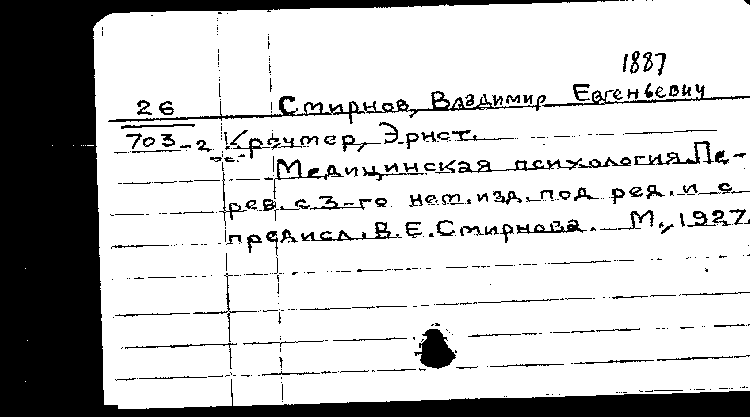 1887
26 Смирнов, Владимир Евгеньевич
703-2 Кречмер, Эрнст.
Медицинская психология. Пе-
рев. с 3-го нем. изд. под ред. и с
предисл. В.Е. Смирнова. М., 1927.